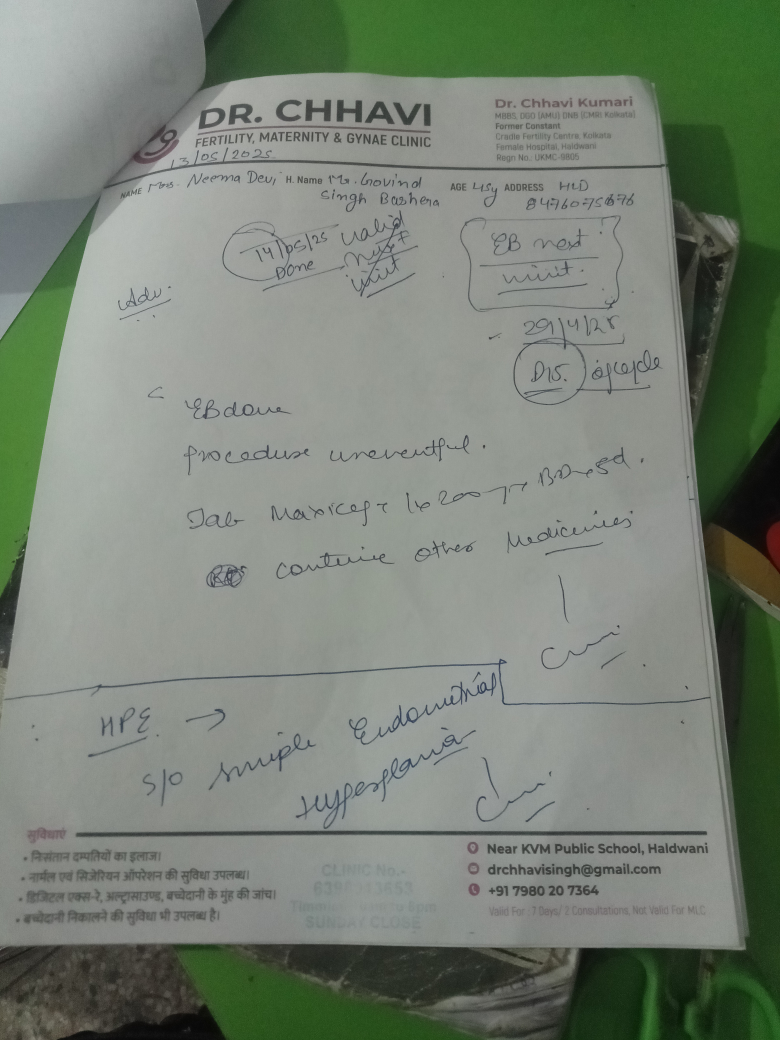 DR. CHHAVI
FERTILITY, MATERNITY & GYNAE CLINIC
Dr. Chhavi Kumari
MBBS, DGO (AMU) DNB (CMRI Kolkata)
Former Constant
Cradle Fertility Centre, Kolkata
Female Hospital, Haldwani
Regn No. UKMC-9805
13/05/2025
NAME Mrs. Neema Devi H. Name Mr. Govind Singh AGE 41y ADDRESS HLD
14/05/25 valid
Done next
visit
EB next
visit.
Adv:
29/4/25
D15. of cycle
EB done
Procedure uneventful.
Tab
continue other Medicines
HPE →
S/O simple Endometrial
Hyperplasia
सुविधाएं
• निसंतान दम्पतियों का इलाज।
• नार्मल एवं सिजेरियन ऑपरेशन की सुविधा उपलब्ध।
• डिजिटल एक्स-रे, अल्ट्रासाउण्ड, बच्चेदानी के मुंह की जांच।
• बच्चेदानी निकालने की सुविधा भी उपलब्ध है।
CLINIC No.-
SUNDAY CLOSE
Near KVM Public School, Haldwani
drchhavisingh@gmail.com
+91 7980 20 7364
Valid For : 7 Days/ 2 Consultations, Not Valid For MLC